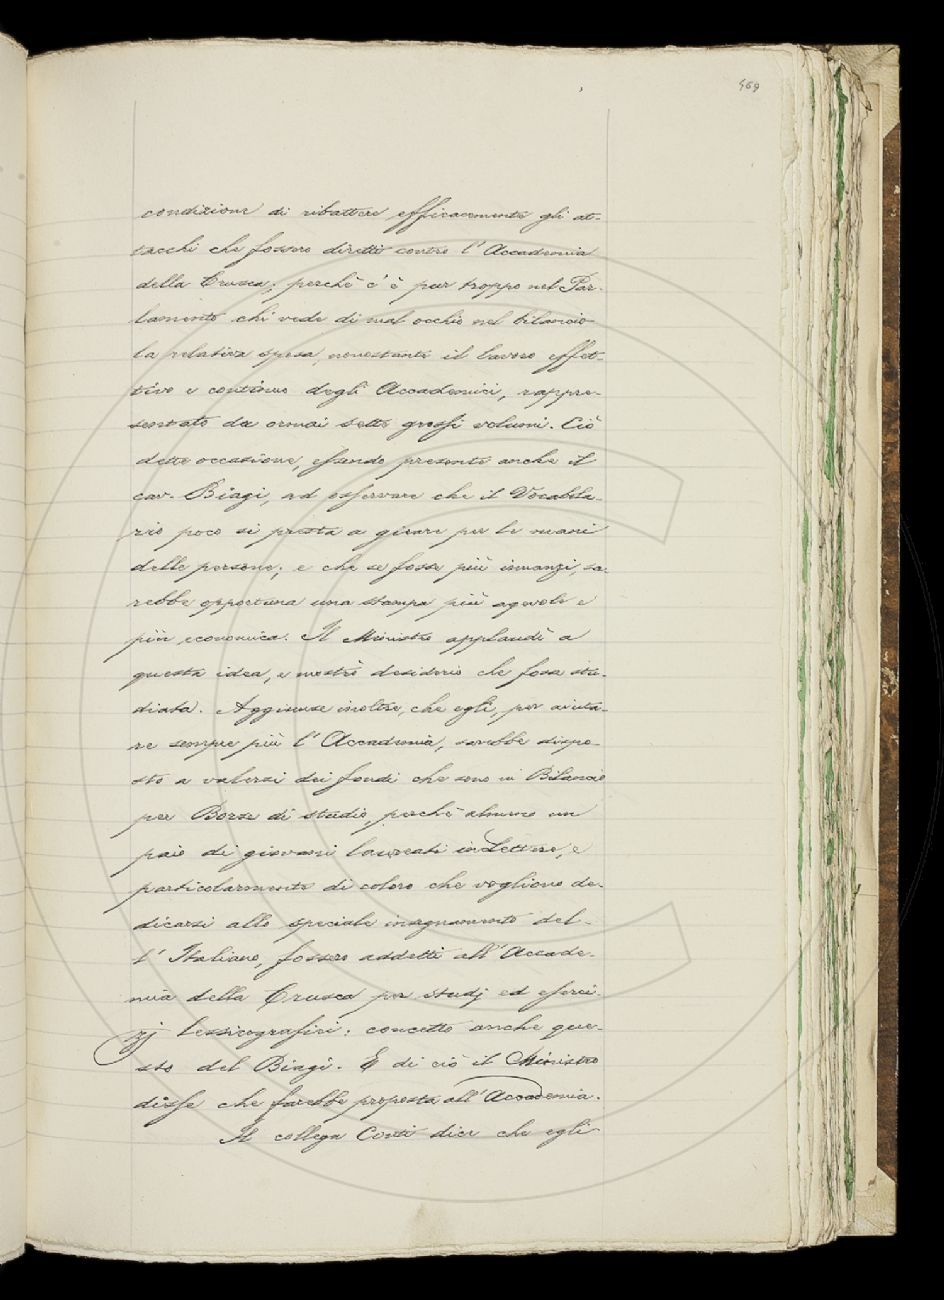 469
condizione di ribattere efficacemente gli at-
tacchi che fossero diretti contro l'Accademia
della Crusca; perchè c'è pur troppo nel Par-
lamento chi vede di mal occhio nel bilancio
la relativa spesa, nonostante il lavoro effet-
tivo e continuo degli Accademici, rappre-
sentato da ormai sette grossi volumi. Ciò
dette occasione, essendo presente anche il
cav. Biagi, ad osservare che il Vocabola-
rio poco si presta a girare per le mani
delle persone; e che se fosse più innanzi, sa-
rebbe opportuna una stampa più agevole e
più economica. Il Ministro applaudì a
questa idea, e mostrò desiderio che fosse stu-
diata. Aggiunse inoltre, che egli, per aiuta-
re sempre più l'Accademia, sarebbe dispo-
sto a valersi dei fondi che sono in Bilancio
per Borse di studio, perchè almeno un
paio di giovani laureati in Lettere, e
particolarmente di coloro che vogliono de-
dicarsi allo speciale insegnamento del-
l'Italiano, fossero addetti all'Accade-
mia della Crusca per studj ed eserci-
zj lessicografici: concetto anche que-
sto del Biagi. E di ciò il Ministro
disse che farebbe proposta all'Accademia.
Il collega Conti dice che egli